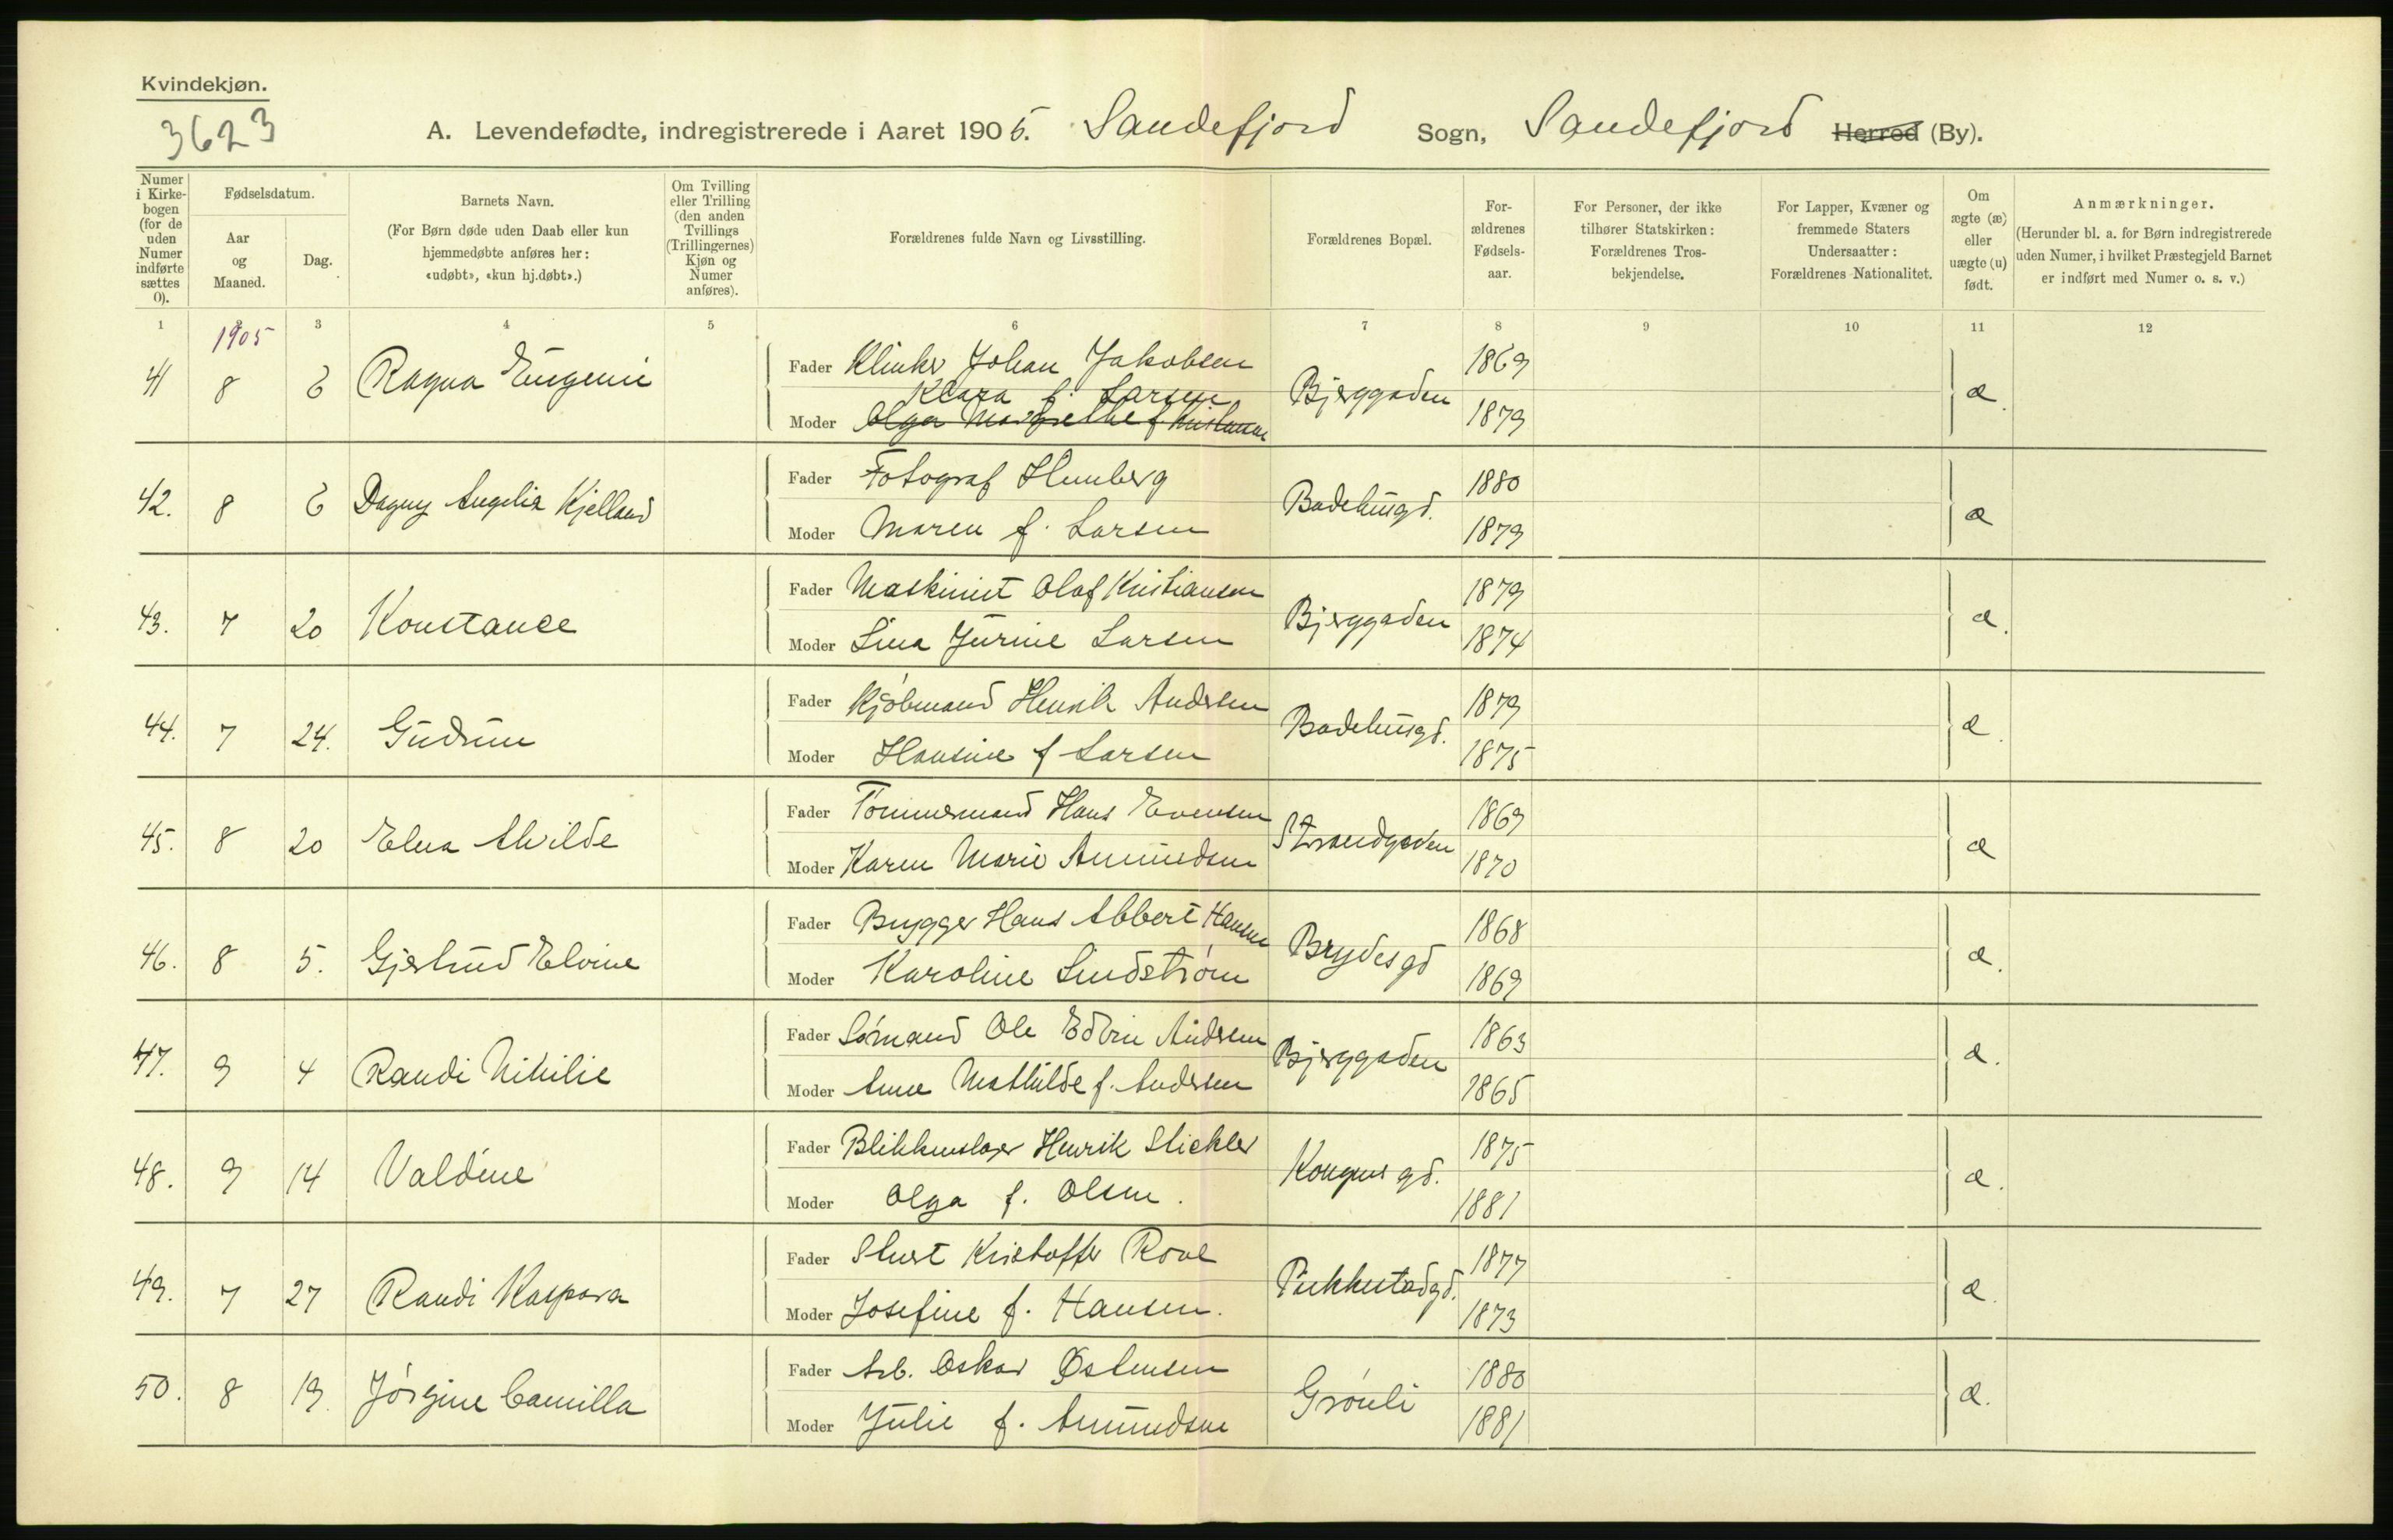 Kvindekjøn.
3623
A. Levendefødte, indregistrerede i Aaret 1905. Sandefjord Sogn, Sandefjord Herred (By).
Numer i Kirke-bogen (for de uden Numer indførte sættes 0).
Fødselsdatum.
Aar og Maaned.
Dag.
Barnets Navn.
(For Børn døde uden Daab eller kun hjemmedøbte anføres her: «udøbt», «kun hj.døbt».)
Om Tvilling eller Trilling (den anden Tvillings (Trillingernes) Kjøn og Numer anføres).
Forældrenes fulde Navn og Livsstilling.
Forældrenes Bopæl.
For-ældrenes Fødsels-aar.
For Personer, der ikke tilhører Statskirken: Forældrenes Tros-bekjendelse.
For Lapper, Kvæner og fremmede Staters Undersaatter: Forældrenes Nationalitet.
Om ægte (æ) eller uægte (u) født.
Anmærkninger.
(Herunder bl. a. for Børn indregistrerede uden Numer, i hvilket Præstegjeld Barnet er indført med Numer o. s. v.)
1 2 3 4 5 6 7 8 9 10 11 12
1905
41 8 6 Ragna Eugenie Fader Klinker Johan Jakobsen Bjerggaden 1869 æ.
Klara f. Larsen
Moder Olga Margrethe f Kristiansen 1879
42. 8 6 Dagny Angelia Kjelland Fader Fotograf Humberg Badehusgd. 1880 æ
Moder Maren f. Larsen 1879
43. 7 20 Konstance Fader Maskinist Olaf Kristiansen Bjerggaden 1879 æ.
Moder Lina Jurine Larsen 1874
44. 7 24. Gudrun Fader Kjøbmand Henrik Andersen Badehusgd. 1879 æ.
Moder Hansine f Larsen 1875
45. 8 20 Elna Alvilde Fader Tømmermand Hans Evensen Strandgaden 1869 æ
Moder Karen Marie Amundsen 1870
46. 8 5. Gjertrud Elvine Fader Brygger Hans Albert Hansen Brydesgd 1868 æ.
Moder Karoline Lindstrøm 1869
47. 9 4 Randi Nikilie Fader Sømand Ole Edvin Andersen Bjerggaden 1863 æ.
Moder Anne Mathilde f. Andersen 1865
48. 9 14 Valdine Fader Blikkenslager Henrik Stickler Kongensgd. 1875 æ.
Moder Olga f. Olsen. 1881
49. 7 27 Randi Kaspara Fader Kristoffer Rove 1877 æ.
Moder Josefine f. Hansen. 1873
50. 8 19 Jørgine Camilla Fader Arb. Oskar Østensen Grønli 1880 æ.
Moder Julie f. Amundsen 1881